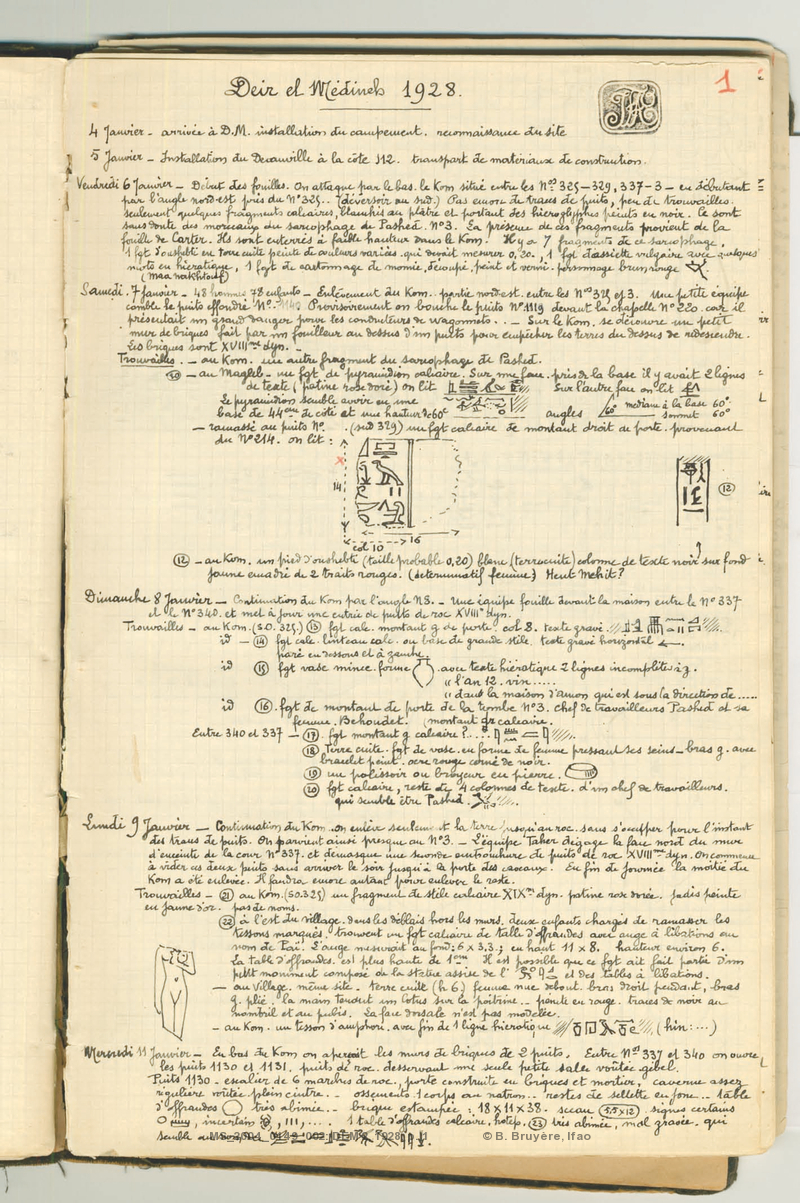 Deir el Médineh 1928.
1
4 Janvier - arrivée à D.M. installation du campement. reconnaissance du site
5 Janvier - Installation du Decauville à la côte 112. transport de materiaux de construction.
Vendredi 6 Janvier - Début des fouilles. On attaque par le bas. le Kom situé entre les Nos 325-329, 337-3 - en débutant
par l'angle nord-est près du N°325.. (déversoir au sud.) Pas encore de traces de puits, peu de trouvailles.
seulement quelques fragments calcaires, blanchis au plâtre et portant des hieroglyphes peints en noir. Ce sont
sans doute des morceaux du sarcophage de Pashed. N°3. La présence de ces fragments provient de la
fouille de Carter. Ils sont enterrés à faible hauteur dans le Kom. Il y a 7 fragments de ce sarcophage,
1 fgt d'oushebti en terre cuite peinte de couleurs variées. qui devait mesurer 0,20., 1 fgt d'assiette vulgaire avec quelques
mots en hiératique, 1 fgt de cartonnage de momie, découpé, peint et verni. personnage brun rouge
(Maa nakhtouf)
Samedi. 7 Janvier - 48 hommes 78 enfants - Enlèvement du Kom. partie nord-est. entre les Nos 325 et 3. Une petite équipe
comble le puits effondré N°. Provisoirement on bouche le puits N°1119 devant la chapelle N°220. car il
présentait un grand danger pour les conducteurs de wagonnets. - Sur le Kom. se découvre un petit
mur de briques fait par un fouilleur au dessus d'un puits pour empêcher les terres du dessus de redescendre.
Les briques sont XVIIIme dyn. -
Trouvailles. - au Kom. un autre fragment du sarcophage de Pashed.
(10) - au Magheb - un fgt de pyramidion calcaire. Sur une face. près de la base il y avait 2 lignes
de texte (patine rose doré) on lit Sur l'autre face on lit
Le pyramidion semble avoir eu une
base de 44cm de côté et une hauteur de 60° angles 60° mediane à la base 60°
sommet 60°
- ramassé au puits N°. (sud 329) un fgt calcaire de montant droit de porte. provenant
du N°214. on lit :
x
14
col 10
16
(12)
(12) - au Kom. un pied d'oushebti (taille probable 0,20) blanc (terre cuite) colonne de texte noir sur fond
jaune encadré de 2 traits rouges. (determinatif femme) Hent Mehit?
Dimanche 8 Janvier - Continuation du Kom par l'angle N3. - Une équipe fouille devant la maison entre le N° 337
et le N°340. et met à jour une entrée de puits de roc XVIIIe dyn.
Trouvailles - au Kom. (S.O. 325.) (13) fgt calc. montant g de porte. col 8. texte gravé.
id - (14) fgt calc. linteau calc. ou base de grande stèle. texte gravé horizontal
paré en dessous et à gauche.
id (15) fgt vase mince. forme avec texte hiératique 2 lignes incomplètes
" l'an 12. vin .....
" dans la maison d'amon qui est sous la direction de .....
id (16). fgt de montant de porte de la tombe N°3. chef de travailleurs Pashed et sa
femme. Behoudet. (montant dr calcaire.
Entre 340 et 337 - (17). fgt montant g calcaire ?...
(18) Terre cuite. fgt de vase. en forme de femme pressant ses seins - bras g. avec
bracelet peint. ocre rouge cerné de noir.
(19) un polissoir ou broyeur en pierre.
(20) fgt calcaire, reste de 4 colonnes de texte. d'un chef de travailleurs.
qui semble être Pashed.
Lundi 9 Janvier - Continuation du Kom. on enlève seulement la terre jusqu'au roc. sans s'occuper pour l'instant
des traces de puits. On parvient ainsi presque au N°3. - L'équipe Taher dégage la face nord du mur
d'enceinte de la cour N°337. et démasque une seconde embouchure de puits de roc XVIIIe dyn. On commence
à vider ces deux puits sans arriver le soir jusqu'à la porte des caveaux. En fin de journée la moitié du
Kom a été enlevée. Il faudra encore autant pour enlever le reste.
Trouvailles - (21) au Kom. (S.O. 325) un fragment de stèle calcaire XIXme dyn. patine rose dorée. jadis peinte
en jaune d'or. pas de noms.
(22) à l'est du village. dans les déblais hors les murs. deux enfants chargés de ramasser les
tessons marqués. trouvent un fgt calcaire de table d'offrandes avec auge à libations au
nom de Paï. L'auge mesurait au fond: 6 x 3.3; en haut 11 x 8. hauteur environ 6.
La table d'offrandes. est plus haute de 1cm. Il est possible que ce fgt ait fait partie d'un
petit monument composé de la statue assise de l' et des tables à libations.
- au village. même site. terre cuite (h 6.) femme nue debout. bras droit pendant, bras
g. plié. la main tenant un lotus sur la poitrine. - peinte en rouge. traces de noir au
nombril et au pubis. La face dorsale n'est pas modelée.
- au Kom. un tesson d'amphore. avec fin de 1 ligne hieratique (hin: ....)
Mercredi 11 Janvier - En bas du Kom on aperçoit les murs de briques de 2 puits. Entre Nos 337 et 340 on ouvre
les puits 1130 et 1131. puits de roc. desservant une seule petite salle voûtée gebel.
Puits 1130 - escalier de 6 marches de roc., porte construite en briques et mortier, caverne assez
régulière voûtée plein cintre. - ossements 1 corps au natron. - restes de sellette en jonc. - table
d'offrandes très abimée. - brique estampée : 18 x 11 x 38. sceau (5,5 x 12) signes certains
, incertain , III, .... 1 table d'offrandes calcaire, hotep. (23) très abimée, mal gravée. qui
semble au
© B. Bruyère, Ifao